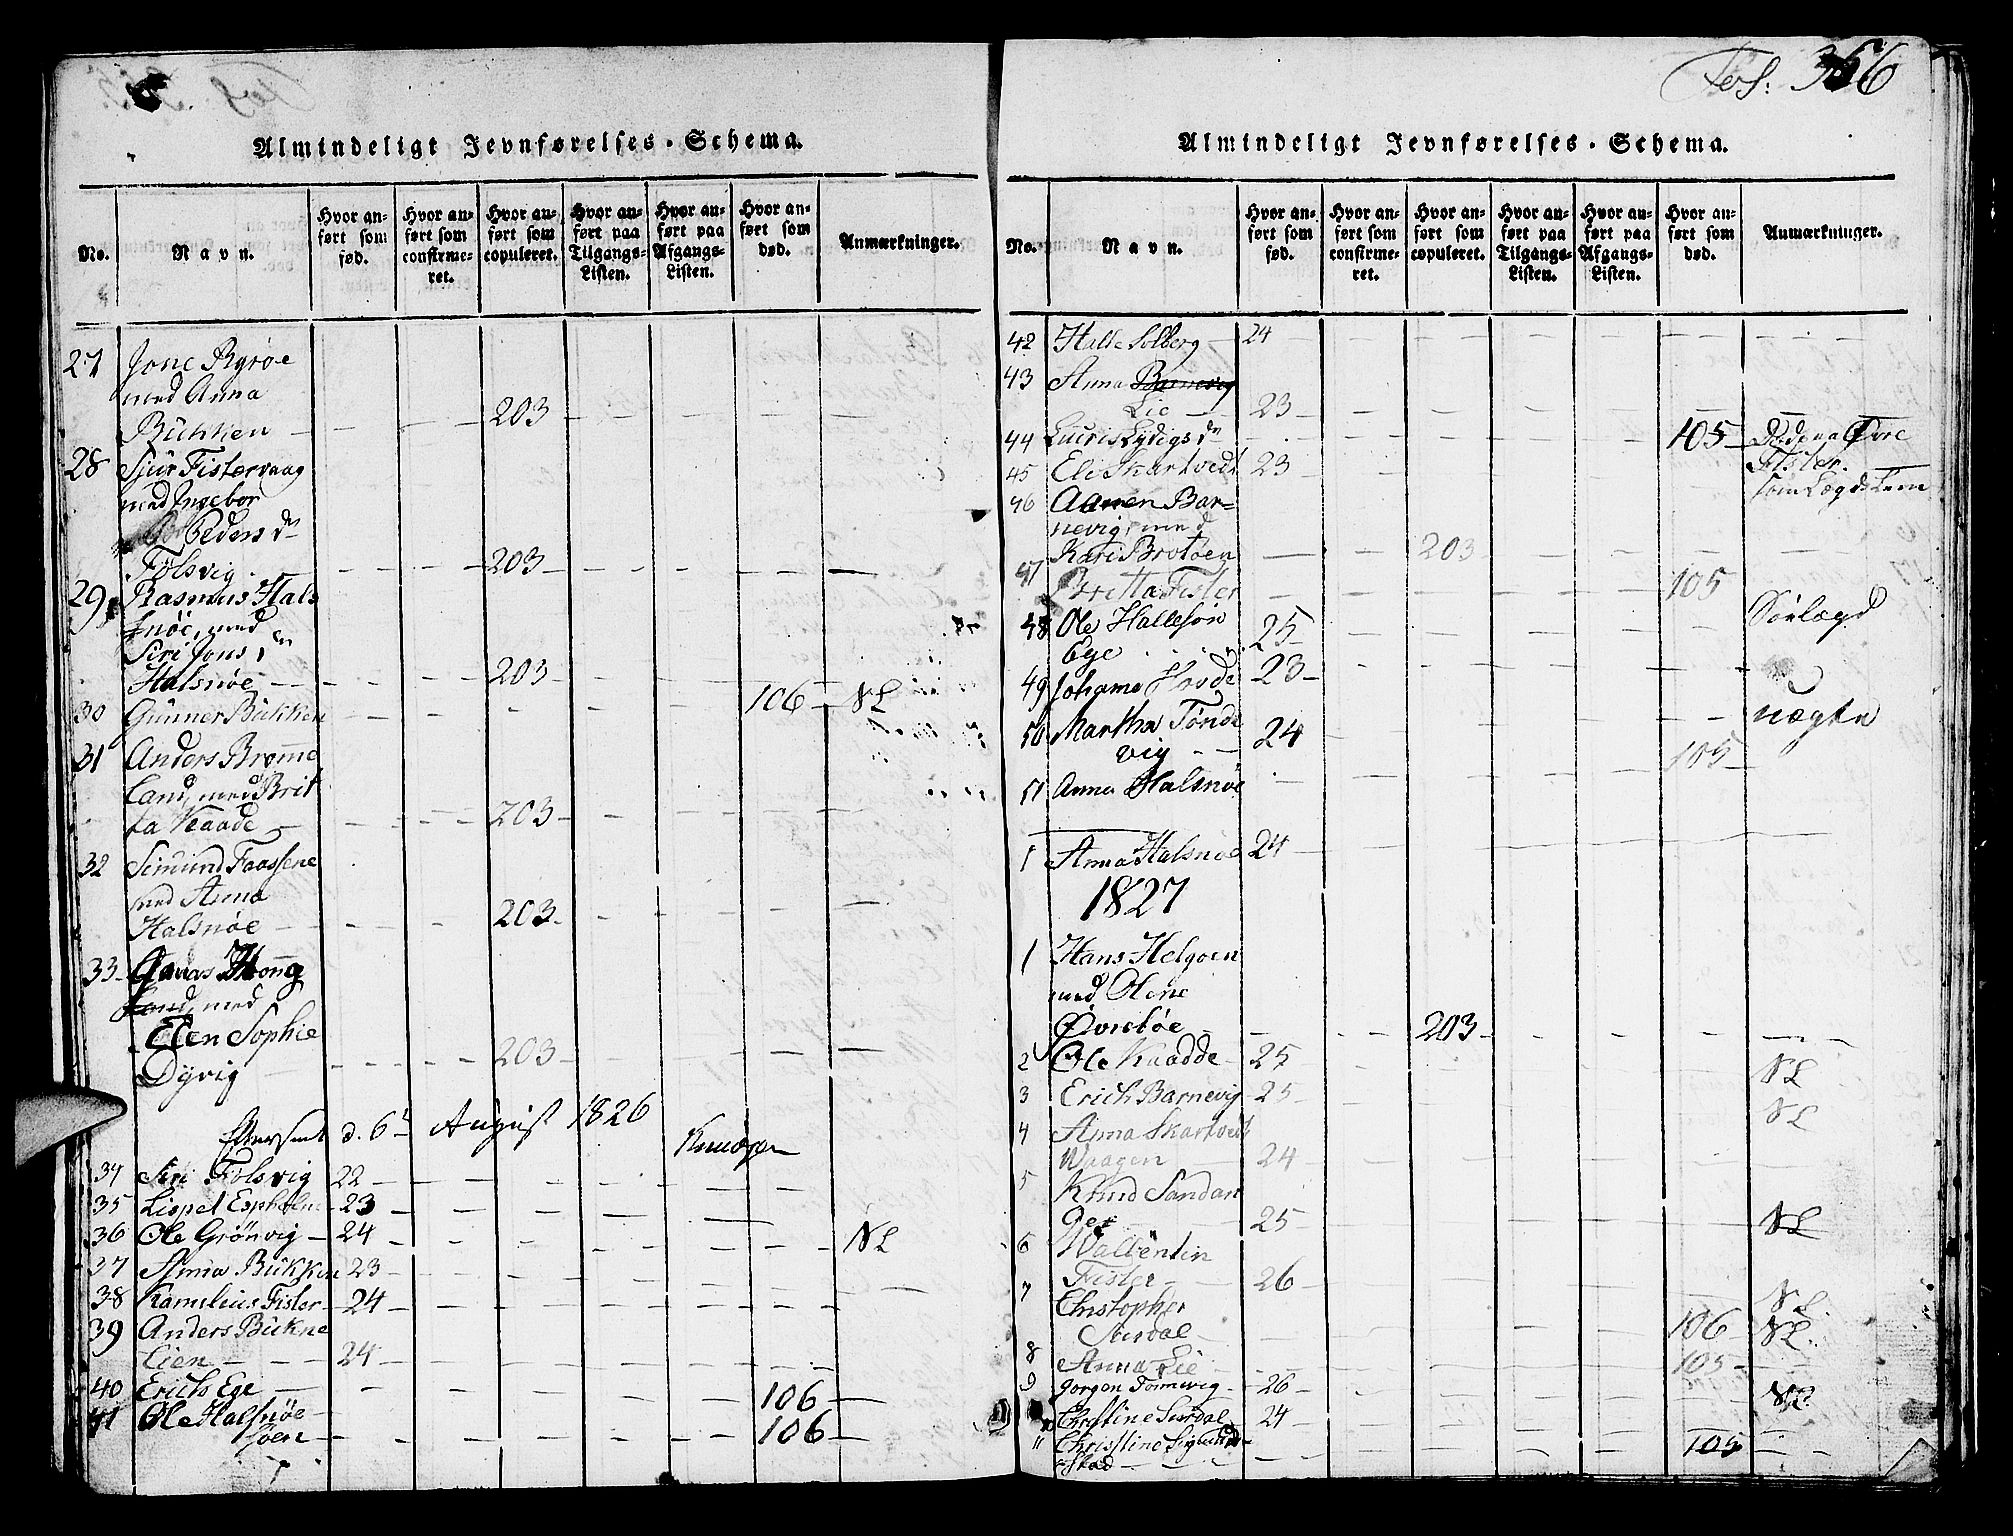 Almindeligt Jevnførelses-Schema.
No. Navn. Hvor anført som fød. Hvor anført som confirmeret. Hvor anført som copuleret. Hvor anført paa Tilgangs-Listen. Hvor anført paa Afgangs-Listen. Hvor anført som død. Anmærkninger.
27 Jone Byrøe
med Anna
Bükken 203
28 Sjur Fistervaag
med Ingebor
Peders dn
Følsvig 203
29 Rasmus Hals
nøe, med
Siri Jons dn
Halsnøe 203
30 Günner Bükken 106 NL
31 Anders Bromme
land, med Brit
ta Kaade 203
32 Simund Faassene
med Anna
Halsnøe 203
33 Hong
land, med
Elen Sophie
Dÿvig 203
Efterseet d. 6t August 1826
34 Siri Følsvig 22
35 Lispet Espholm 23
36 Ole Grönvig 24 NL
37 Anna Bükken 23
38 Kornelius Fister 24
39 Anders Bükne
Lien 24
40 Erich Ege 106
41 Ole Halsnøe 106
søen
Fol: 366
Almindeligt Jevnførelses-Schema.
No. Navn. Hvor anført som fød. Hvor anført som confirmeret. Hvor anført som copuleret. Hvor anført paa Tilgangs-Listen. Hvor anført paa Afgangs-Listen. Hvor anført som død. Anmærkninger.
42 Halle Solberg 24
43 Anna Barnevig
Lie 23
44 Lucris Lydigs dn 105 Død paa Øvre
45 Eli Skartvedt 23 Fister.
som Lægdslem
46 Aamen Bar-
nevig, med
Kari Brotøen 203
47 Britta Fister 105
48 Ole Hallesøn 25
Ege
49 Johanna Hovde 23
50 Martha Tønde
vig 24
51 Anna Halsnøe 105
1 Anna Halsnøe 24
1827
1 Hans Helgøen
med Olene
Øvrebøe 203
2 Ole Kaadde 25 NL
3 Erich Barnevig 25 NL
4 Anna Skartvedt
Waagen 24
5 Knud Sandan
ger 25 NL
6 Walbentin
Fister 26
7 Christopher NL
106 NL
8 Anna Lie 105
9 Jorgen Tønnevig 26
10 Christine Suvdal 24
11 Christine Sigmund
stad 105